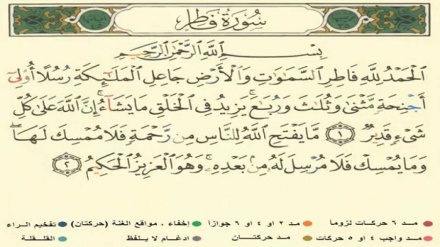 سُورَةُ فَاطِرٍ
بِسْمِ اللَّهِ الرَّحْمَٰنِ الرَّحِيمِ
الْحَمْدُ لِلَّهِ فَاطِرِ السَّمَٰوَٰتِ وَالْأَرْضِ جَاعِلِ الْمَلَٰٓئِكَةِ رُسُلًا أُو۟لِىٓ
أَجْنِحَةٍ مَّثْنَىٰ وَثُلَٰثَ وَرُبَٰعَ ۚ يَزِيدُ فِى الْخَلْقِ مَا يَشَآءُ ۚ إِنَّ اللَّهَ عَلَىٰ كُلِّ
شَىْءٍ قَدِيرٌ ١ مَّا يَفْتَحِ اللَّهُ لِلنَّاسِ مِن رَّحْمَةٍ فَلَا مُمْسِكَ لَهَا ۖ
وَمَا يُمْسِكْ فَلَا مُرْسِلَ لَهُۥ مِنۢ بَعْدِهِۦ ۚ وَهُوَ الْعَزِيزُ الْحَكِيمُ ٢
مد ٦ حركات لزوما مد ٢ او ٤ او ٦ جوازا إخفاء ، مواقع الغنة (حركتان) تفخيم الراء
مد واجب ٤ او ٥ حركات مد حركتان ادغام ، لا يلفظ القلقلة